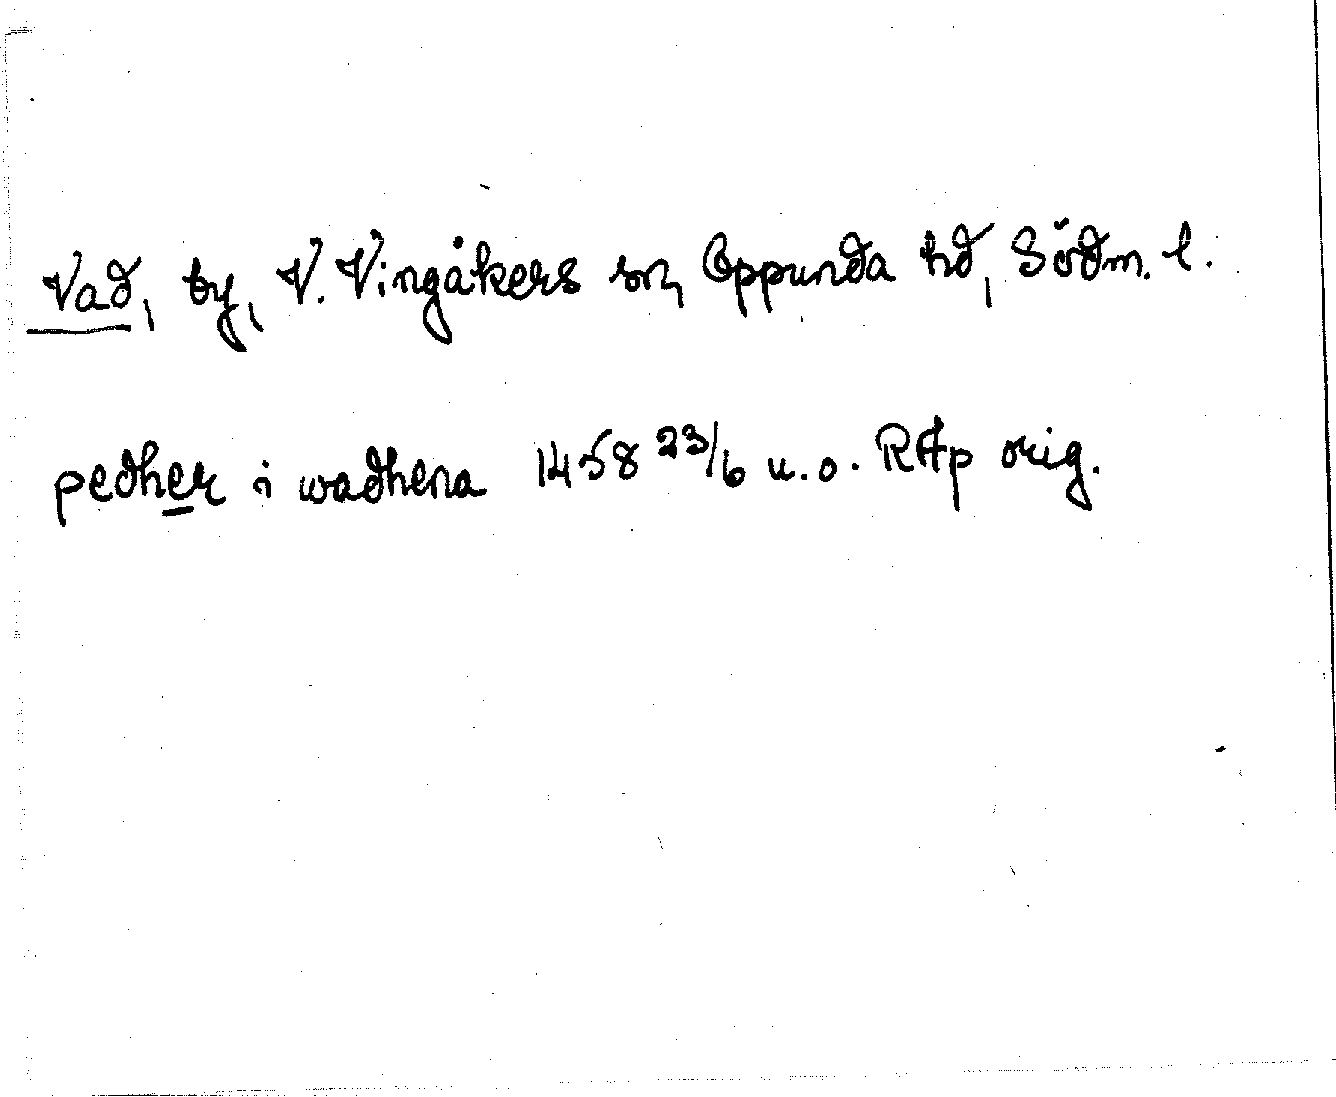 Vad, by, V. Vingåkers sn, Oppunda hd, Södm. l.
pedher i wadhena 1458 23/6 u.o. RAp orig.